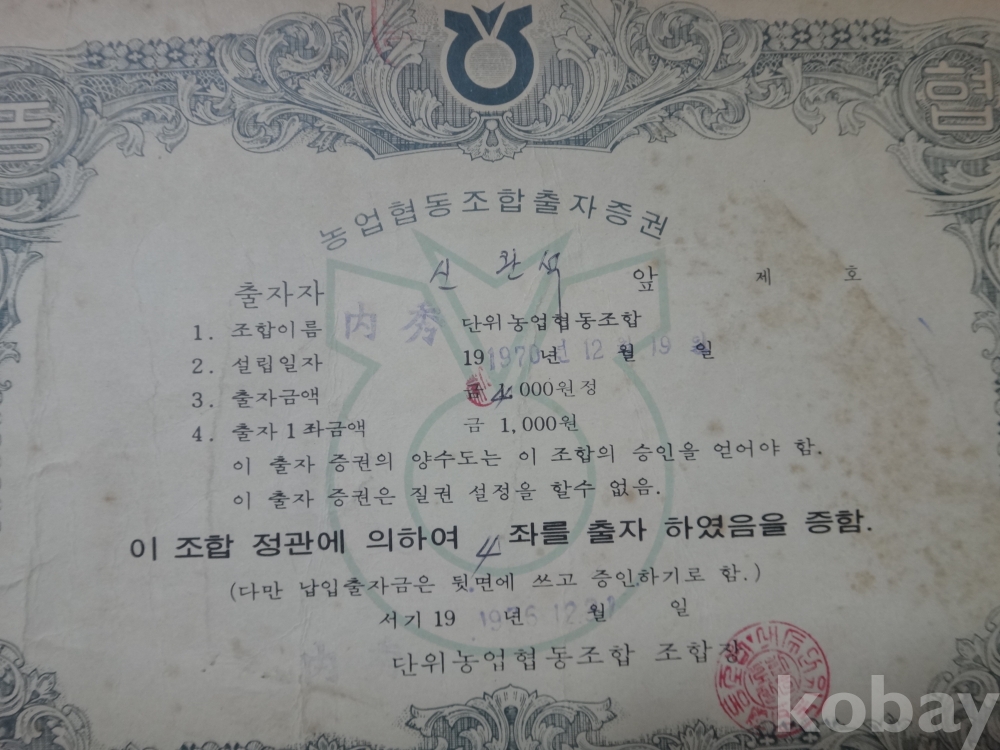 농업협동조합출자증권
출자자 신 완 석 앞 제 호
1. 조합이름 內 秀 단위농업협동조합
2. 설립일자 19 1970년 년 12 월 19 일
3. 출자금액 금 4,000원정
4. 출자1좌금액 금 1,000원
이 출자 증권의 양수도는 이 조합의 승인을 얻어야 함.
이 출자 증권은 질권 설정을 할수 없음.
이 조합 정관에 의하여 4 좌를 출자 하였음을 증함.
(다만 납입출자금은 뒷면에 쓰고 증인하기로 함.)
서기 19 년 12 31 월 일
단위농업협동조합 조합장
kobay